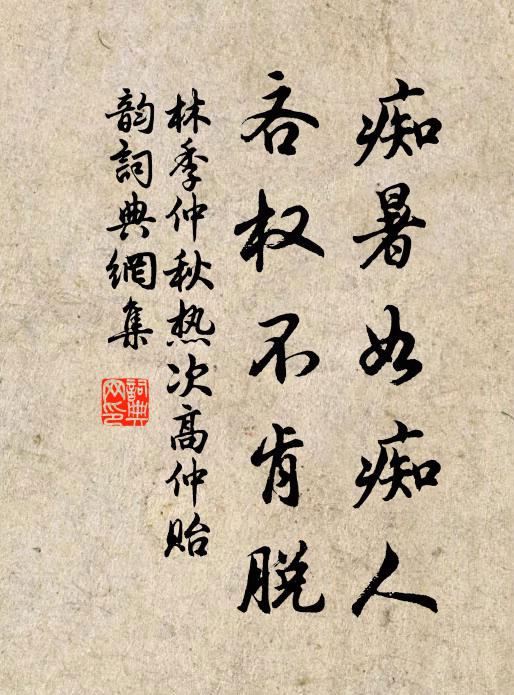 痴暑如痴人
吝权不肯脱
林季仲秋热次高仲贻
韵詞典網集
詞典
网印